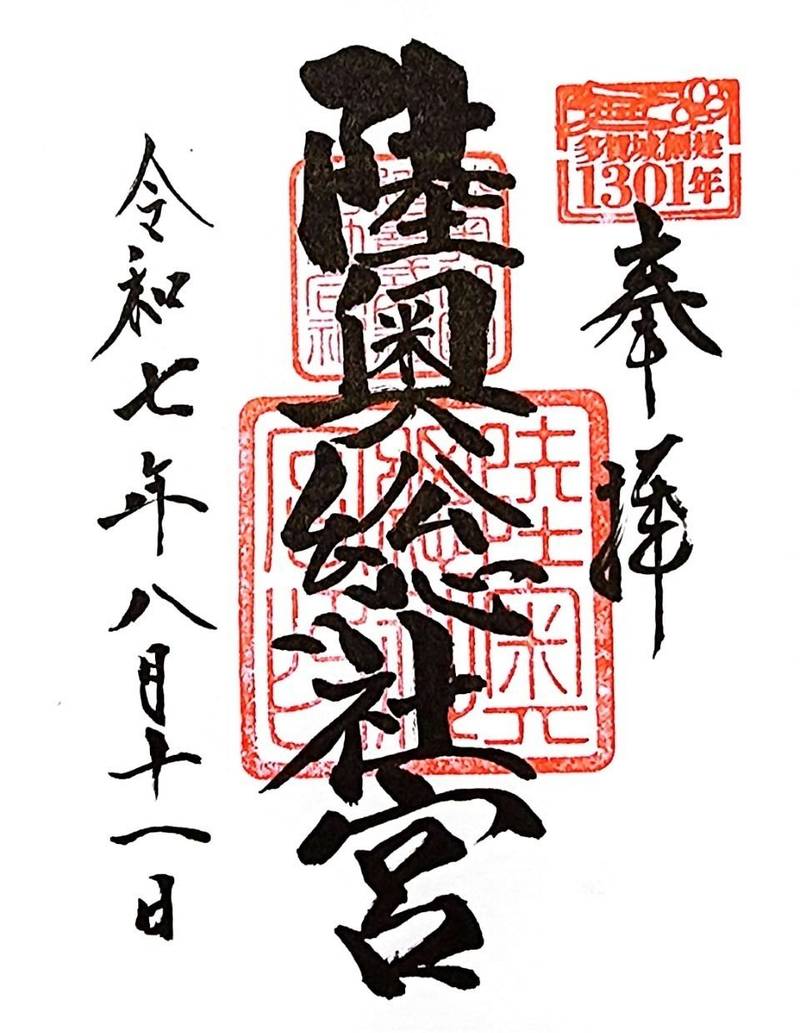 多賀城創建
1301年
奉拝
陸奥総社宮
令和七年八月十一日